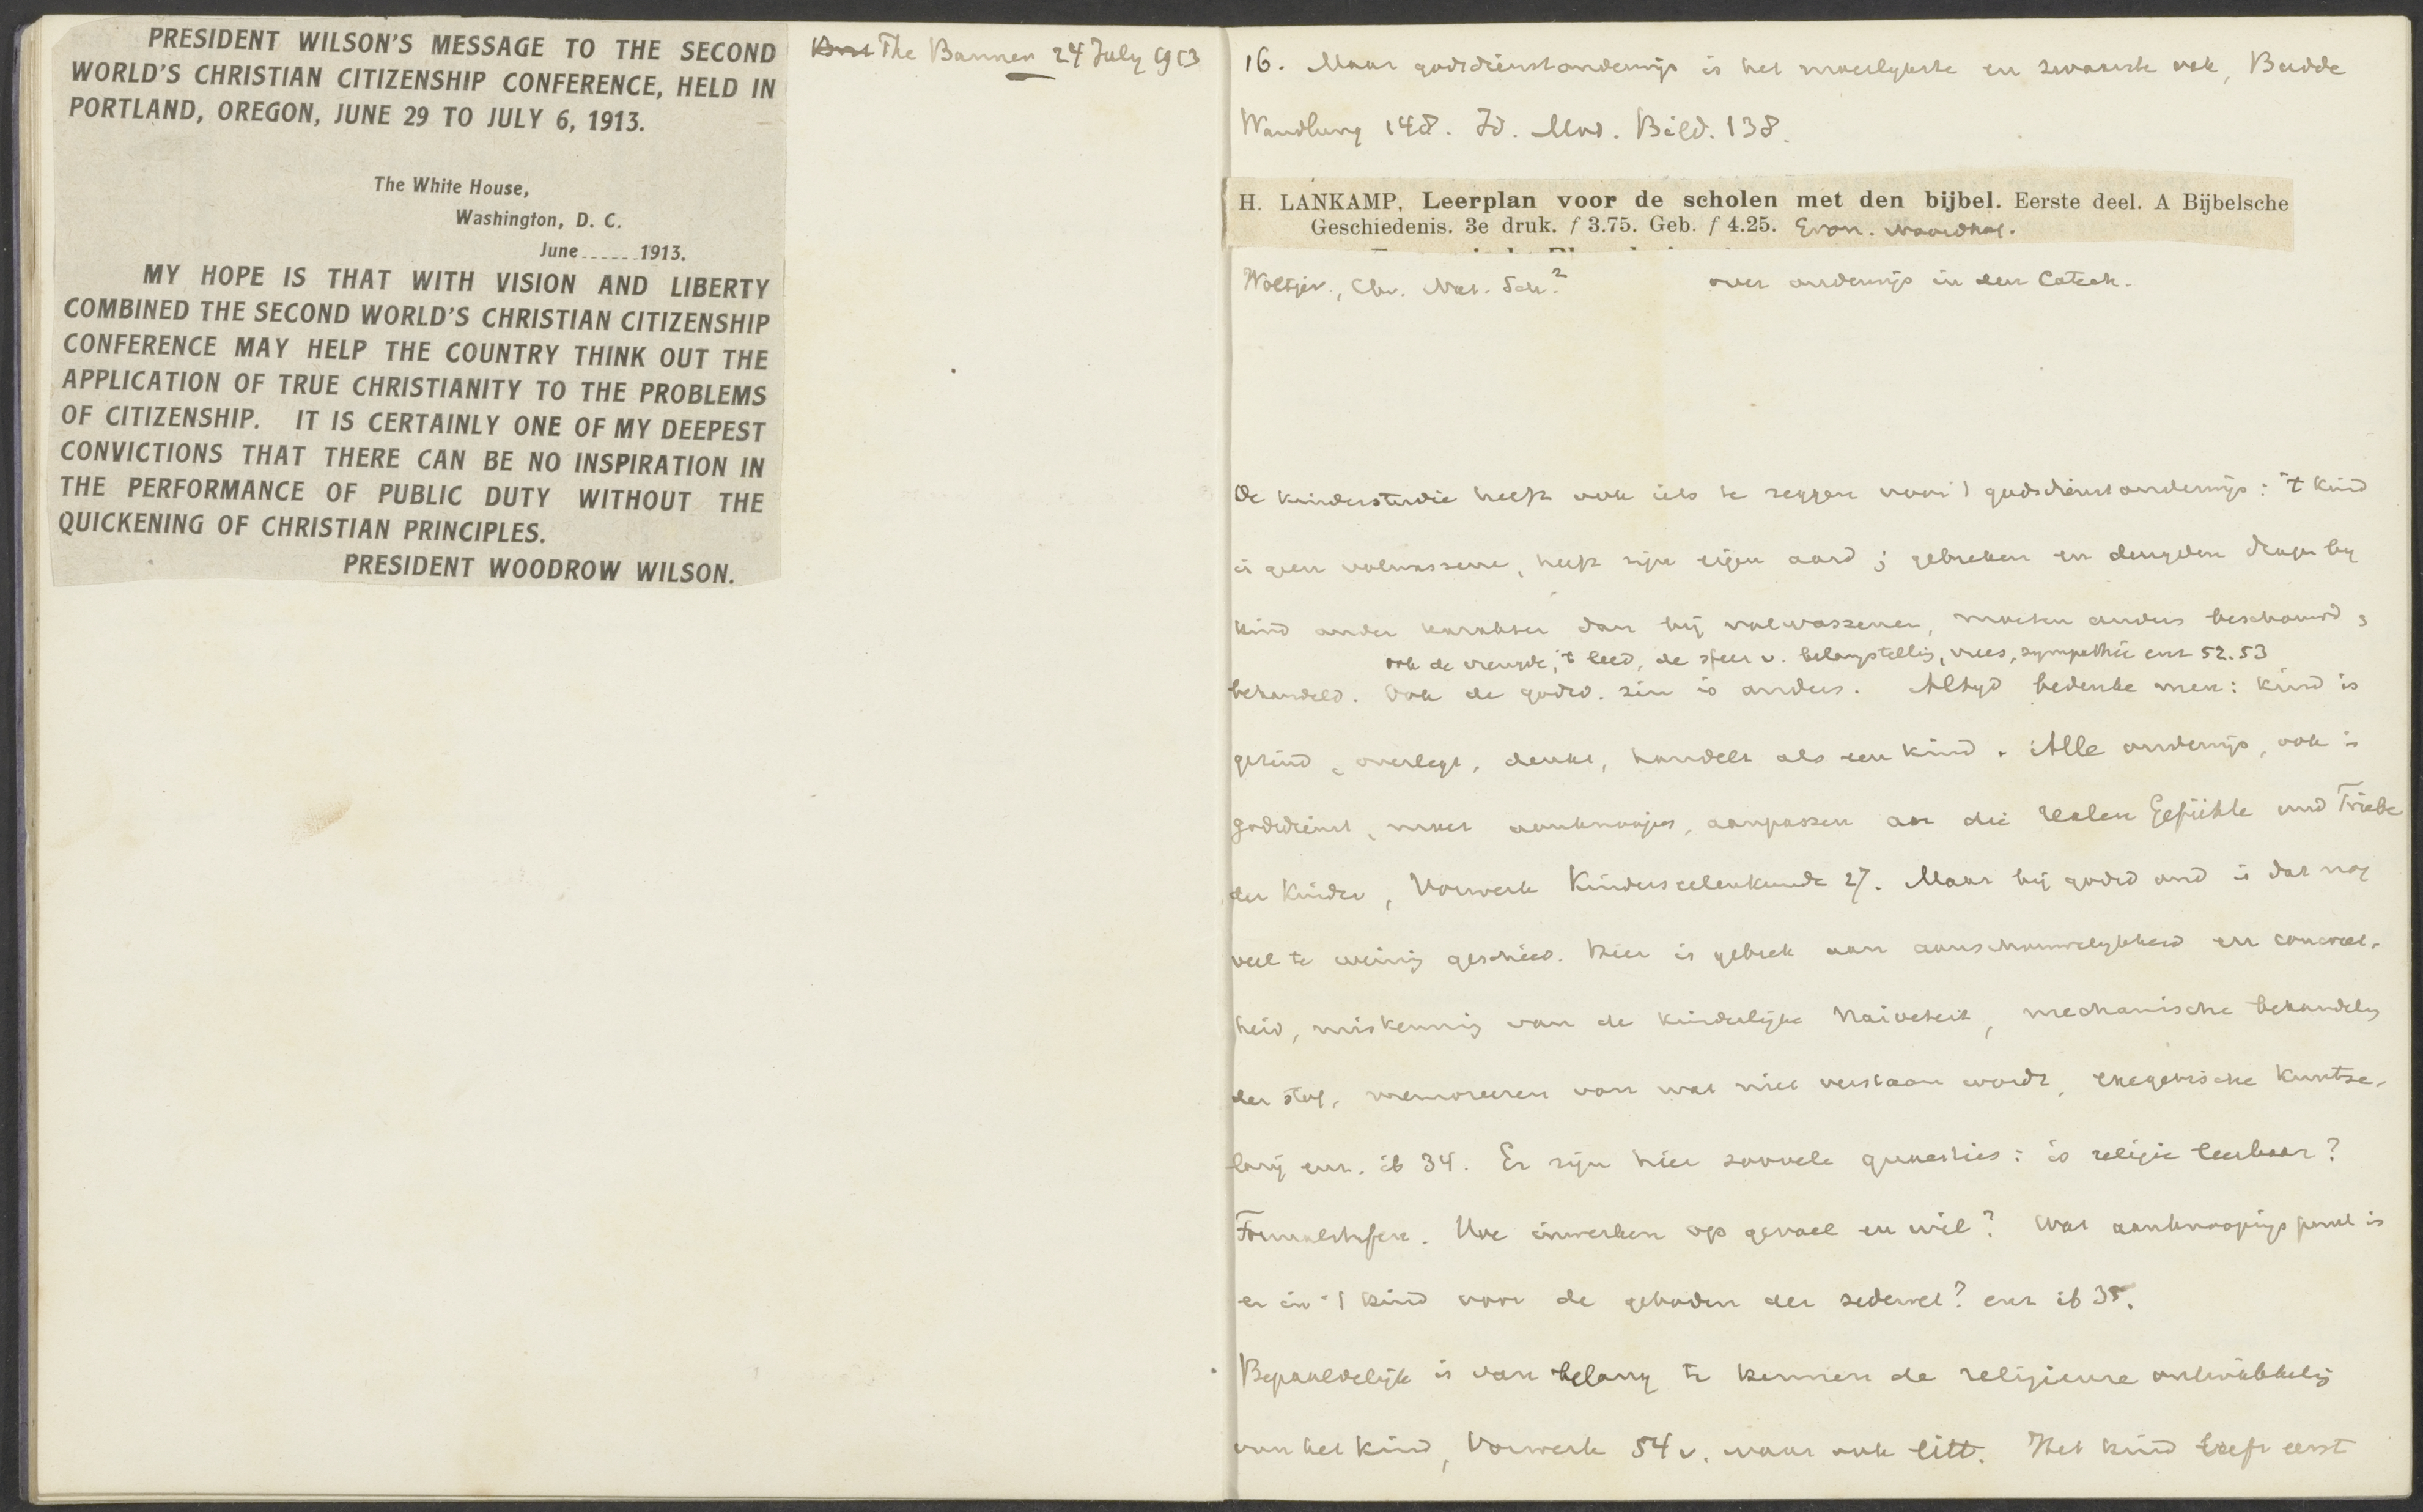 PRESIDENT WILSON'S MESSAGE TO THE SECOND
WORLD'S CHRISTIAN CITIZENSHIP CONFERENCE, HELD IN
PORTLAND, OREGON, JUNE 29 TO JULY 6, 1913.
The White House,
Washington, D. C.
June......1913.
MY HOPE IS THAT WITH VISION AND LIBERTY
COMBINED THE SECOND WORLD'S CHRISTIAN CITIZENSHIP
CONFERENCE MAY HELP THE COUNTRY THINK OUT THE
APPLICATION OF TRUE CHRISTIANITY TO THE PROBLEMS
OF CITIZENSHIP. IT IS CERTAINLY ONE OF MY DEEPEST
CONVICTIONS THAT THERE CAN BE NO INSPIRATION IN
THE PERFORMANCE OF PUBLIC DUTY WITHOUT THE
QUICKENING OF CHRISTIAN PRINCIPLES.
PRESIDENT WOODROW WILSON.
The Banner 24 July 1913
16. Maar godsdienstonderwijs is het moeilykste en zwaarste ook, Budde
Wandlung 148. Id. Mod. Bild. 138.
H. LANKAMP, Leerplan voor de scholen met den bijbel. Eerste deel. A Bijbelsche
Geschiedenis. 3e druk. f 3.75. Geb. f 4.25.
Woltjer, Chr. Nat. Sch.² over onderwijs in den Catech.
De kinderstudie heeft ook iets te zeggen voor 't godsdienstonderwijs: 't kind
is geen volwassene, heeft zijn eigen aard; gebreken en deugden dragen by
kind ander karakter dan bij volwassenen, moeten anders beschouwd,
ook de vreugde, 't leed, de sfeer v. belangstelling, vrees, sympathie enz 52.53
behandeld. Ook de godsd. zin is anders. Altyd bedenke men: kind is
gezind, overlegt, denkt, handelt als een kind. Alle onderwijs, ook in
godsdienst, moet aanknoopen, aanpassen an die realen Gefühle und Triebe
der Kinder, Vorwerk Kinderseelenkunde 27. Maar bij godsd ond is dat nog
veel te weinig geschied. Hier is gebrek aan aanschouwelykheid en concreet-
heid, miskenning van de kinderlijke naiveteit, mechanische behandeling
der stof, memoreeren van wat niet verstaan wordt, exegetische Kuntse-
larij enz. ib 34. Er zijn hier zoovele quaesties: is religie leerbaar?
Formalstufen. Hoe inwerken op gevoel en wil? Wat aanknoopingspunt is
er in 't kind voor de geboden der zedewet? enz ib 35.
Bepaaldelijk is van belang te kennen de religieuse ontwikkeling
van het kind, Vorwerk 54 v. waar ook litt. Het kind leeft eerst